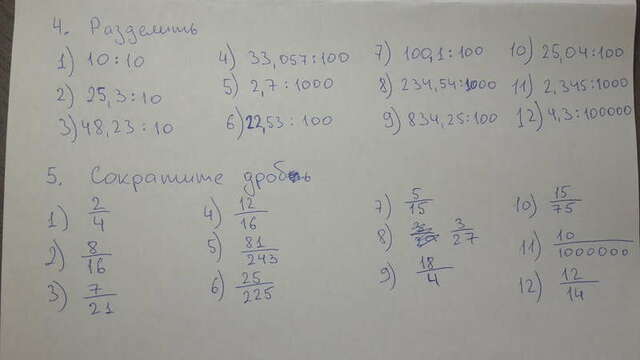 4. Разделить
1) 10:10
2) 25,3:10
3) 48,23:10
4) 33,057:100
5) 2,7:1000
6) 22,53:100
7) 100,1:100
8) 234,54:1000
9) 834,25:100
10) 25,04:100
11) 2,345:1000
12) 4,3:100000
5. Сократите дробь
1) 2/4
2) 8/16
3) 7/21
4) 12/16
5) 81/243
6) 25/225
7) 5/15
8) 3/27
9) 18/4
10) 15/75
11) 10/1000000
12) 12/14